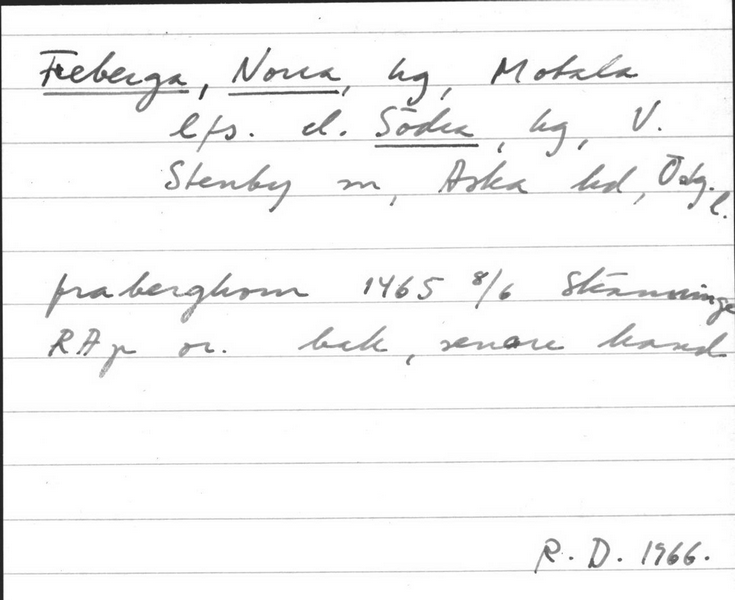 Freberga, Norra, hg, Motala
lfs. el. Södra, hg, V.
Stenby sn, Aska hd, Östg. l.
fraberghom 1465 8/6 Skänninge
RAp or. bak, senare hand
R. D. 1966.